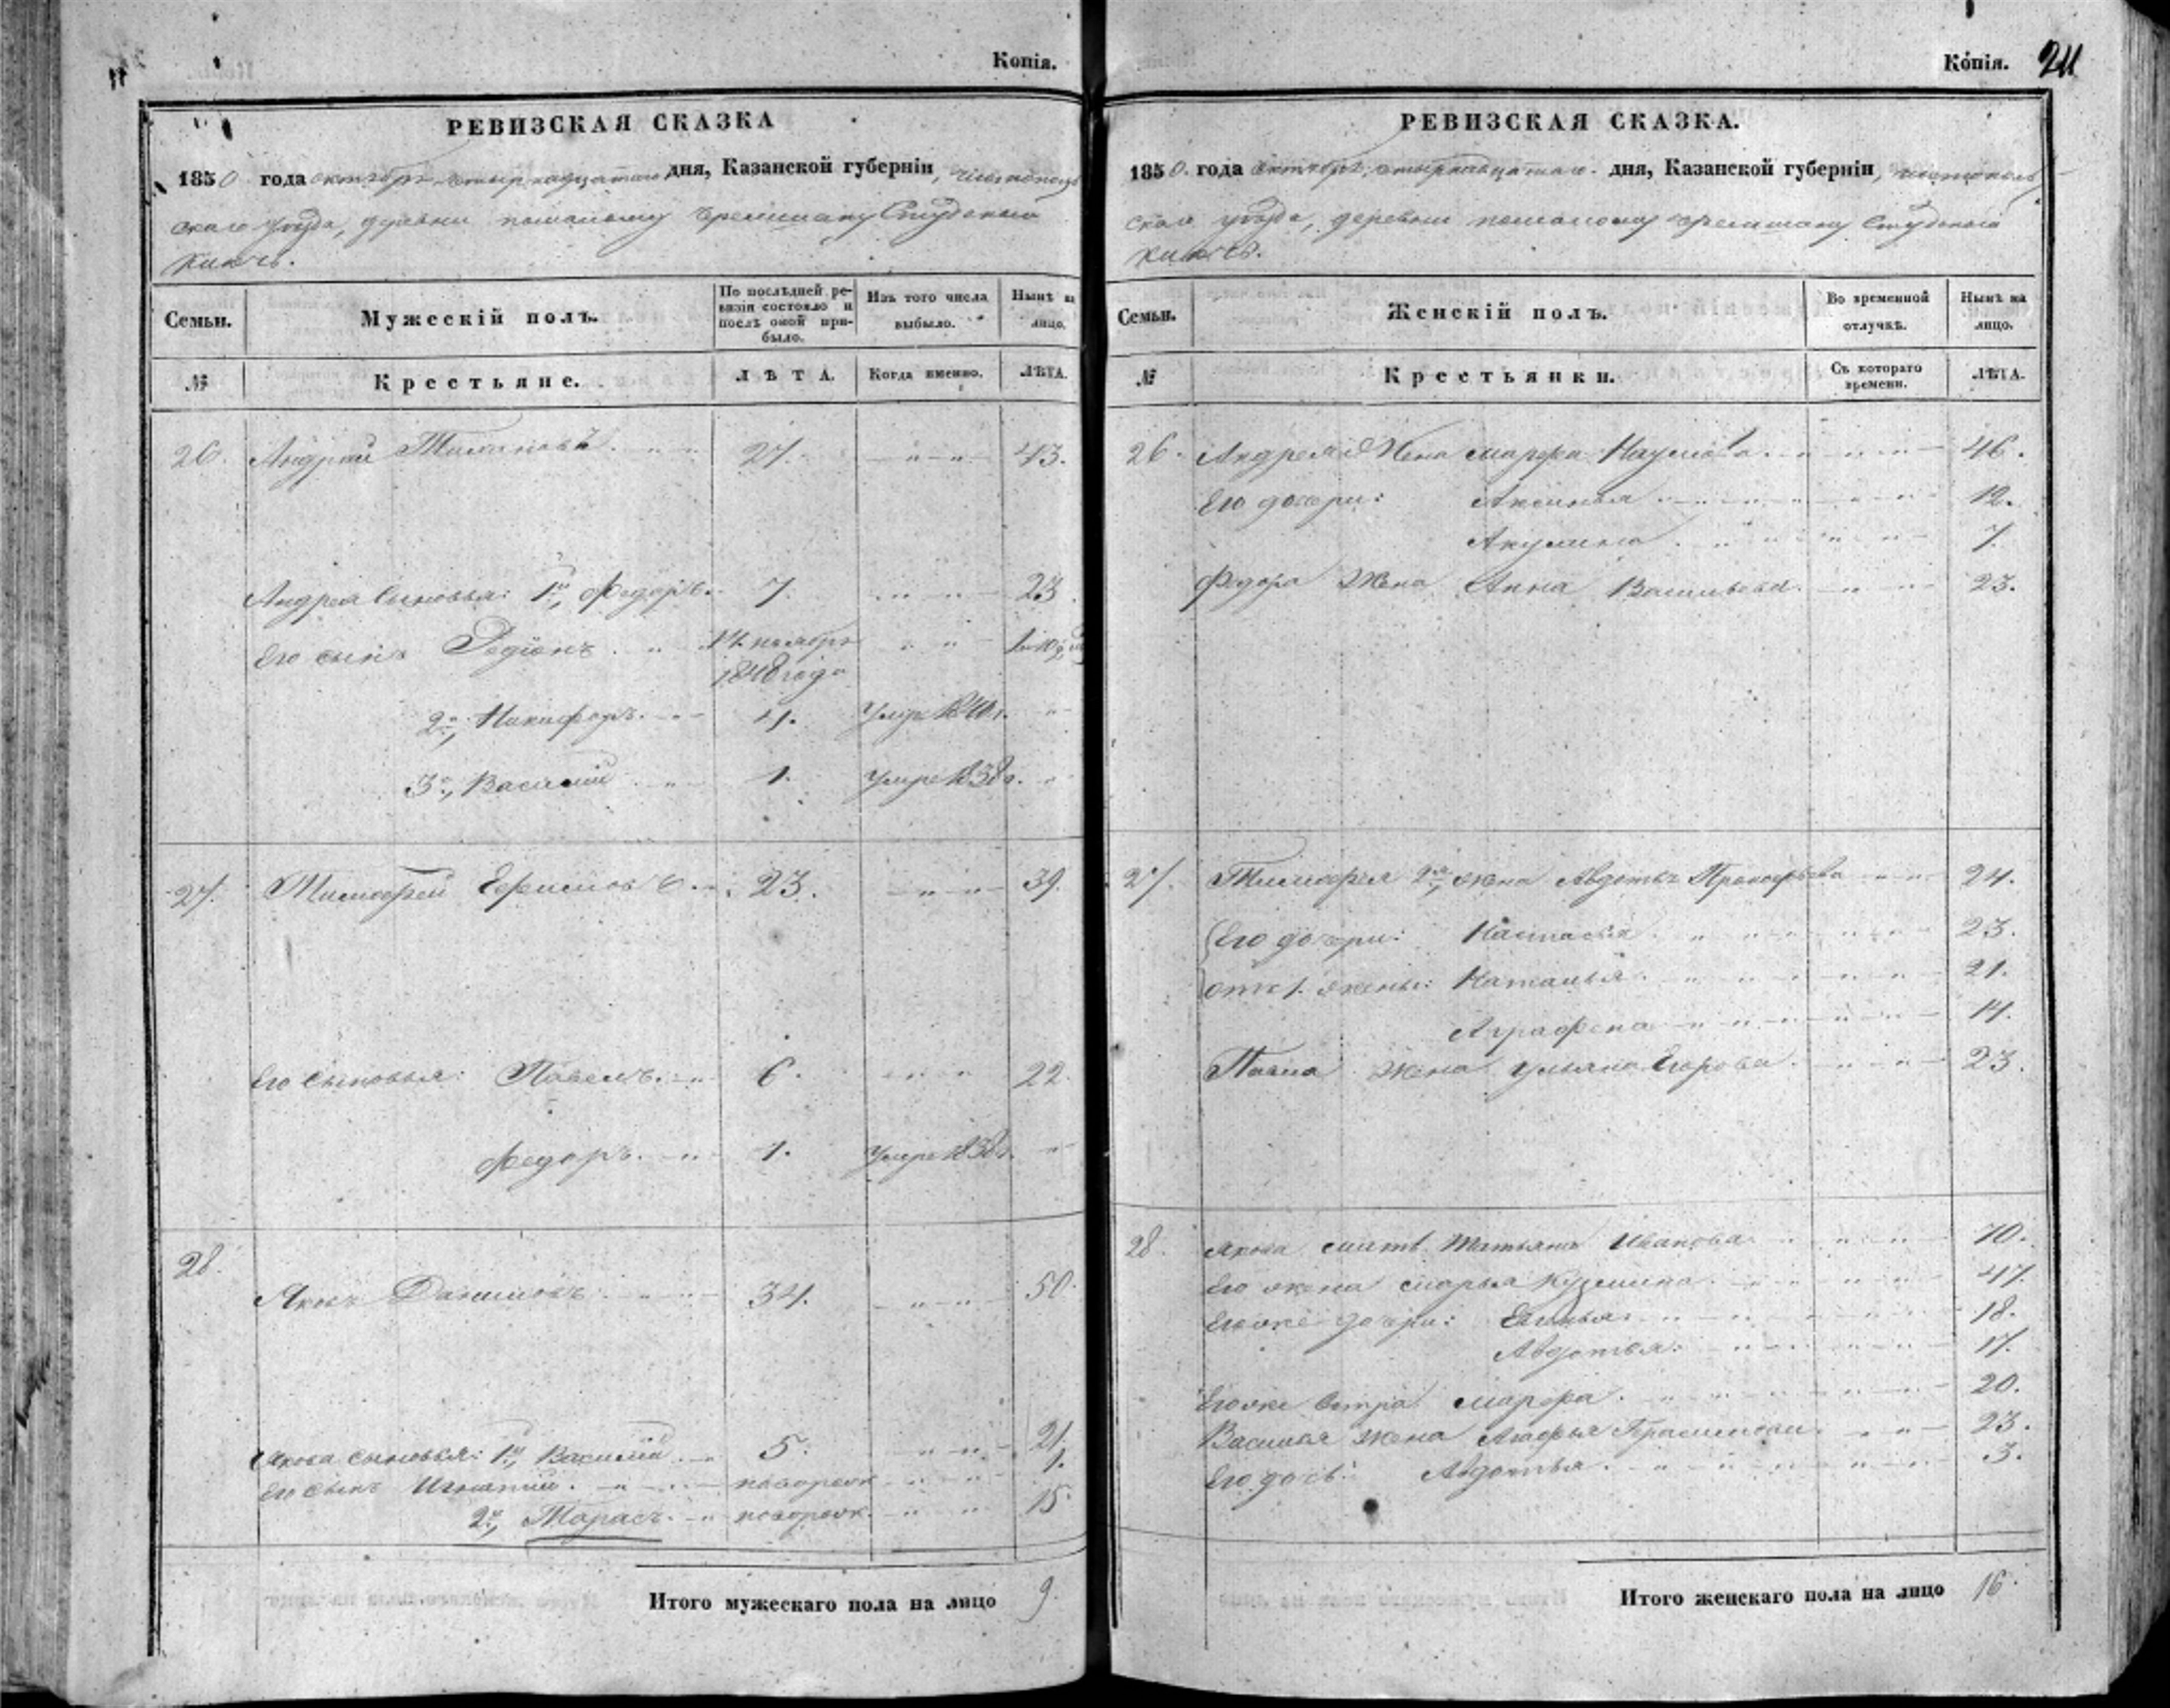 Копія.
РЕВИЗСКАЯ СКАЗКА
1850 года октября четырнадцатаго дня, Казанской губерніи, Чистополь
скаго уѣзда, деревни помалому Черемшану Студеный
Ключь.
Семьи. Мужескій полъ. По послѣдней ревизіи состояло и послѣ оной прибыло. Изъ того числа выбыло. Нынѣ на лицо.
№ Крестьяне. ЛѢТА. Когда именно. ЛѢТА.
26. Андрей 27. 43.
Андрея сыновья: 1й, Федоръ 7. 23.
Его сынъ Родіонъ 14 ноября
1848 года
2й, Никифоръ 4. Умре 1840 г.
3й, Василій 1. Умре 1838 г.
27. Тимофей Ефимовъ 23. 39.
Его сыновья: Павелъ 6. 22.
Федоръ 1. Умре 1838 г.
28. Яковъ Даниловъ 34. 50.
Якова сыновья: 1й, Василій 5. 21.
Его сынъ Игнатій новорож. 1.
2й, Тарасъ новорож. 15.
Итого мужескаго пола на лицо 9.
Копія. 24
РЕВИЗСКАЯ СКАЗКА.
1850. года октября четырнадцатаго дня, Казанской губерніи, Чистополь
скаго уѣзда, деревни помалому Черемшану Студеный
Ключь.
Семьи. Женскій полъ. Во временной отлучкѣ. Нынѣ на лицо.
№ Крестьянки. Съ котораго времени. ЛѢТА.
26. Андрея Жена Марфа Наумова 46.
Его дочери: Аксинья 12.
Акулина 7.
Федора Жена Анна Васильева 23.
27. Тимофея 2я, жена Авдотья Прокофьева 24.
Его дочери: Настасья 23.
отъ 1. жены: Наталья 21.
Аграфена 14.
Павла Жена Ульяна Егорова 23.
28. Якова мать Татьяна Иванова 70.
Его жена Марья Кузмина 47.
Его же дочери: 18.
Авдотья 17.
Его же сестра Марфа 20.
Василья жена 23.
Его дочь: Авдотья 3.
Итого женскаго пола на лицо 16.